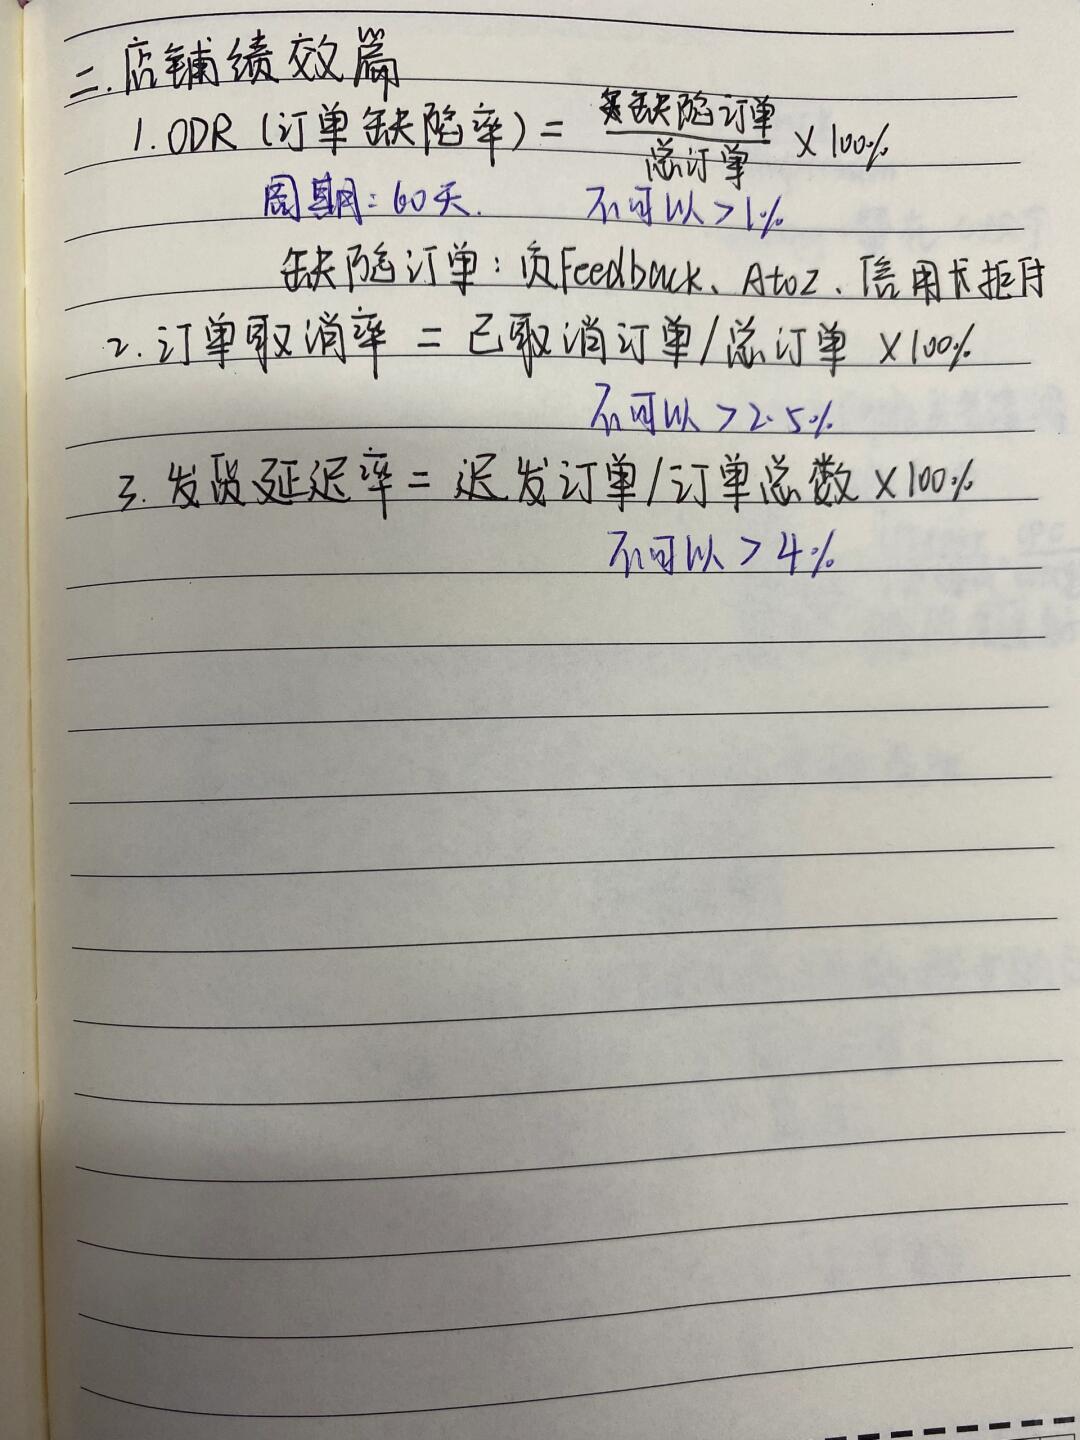 二.店铺绩效篇
1.ODR(订单缺陷率)= 缺陷订单/总订单 ×100%
周期:60天. 不可以>1%
缺陷订单:负Feedback、AtoZ、信用卡拒付
2.订单取消率=已取消订单/总订单 ×100%
不可以>2.5%
3.发货延迟率=迟发订单/订单总数×100%
不可以>4%